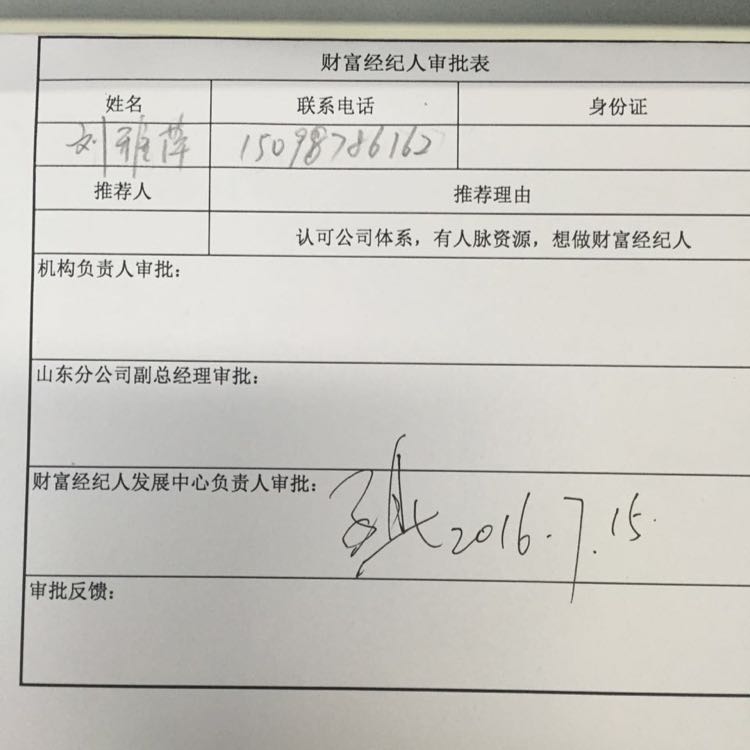 财富经纪人审批表
姓名 联系电话 身份证
刘雅萍 15098786162
推荐人 推荐理由
认可公司体系，有人脉资源，想做财富经纪人
机构负责人审批：
山东分公司副总经理审批：
财富经纪人发展中心负责人审批： 2016.7.15.
审批反馈：